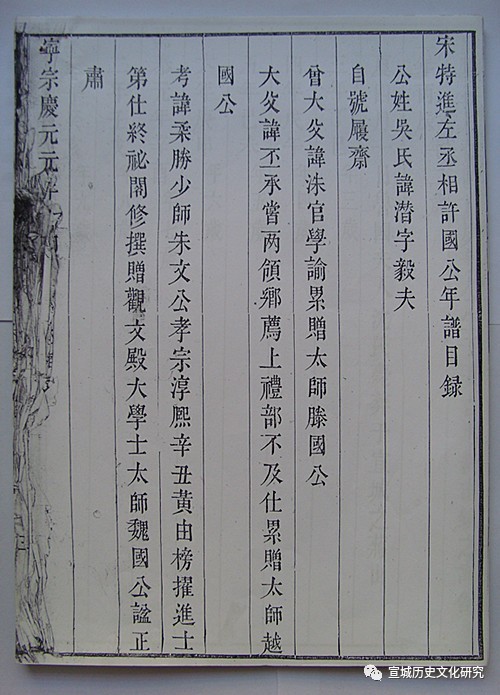 宋特進左丞相許國公年譜目録
公姓吳氏諱潛字毅夫
自號履齋
曾大父諱洙官學諭累贈太師滕國公
大父諱丕承嘗两領鄉薦上禮部不及仕累贈太師越
國公
考諱柔勝少師朱文公孝宗淳熙辛丑黃由榜擢進士
第仕終祕閣修撰贈觀文殿大學士太師魏國公諡正
肅
寧宗慶元元年
宣城历史文化研究